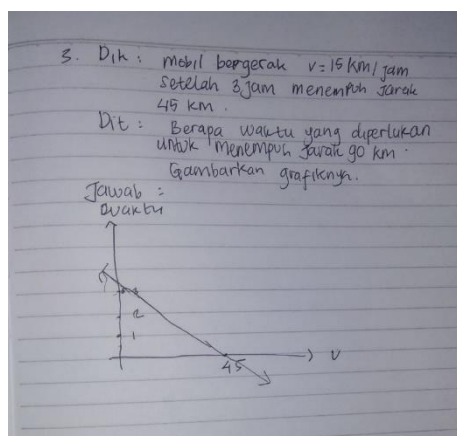 3. Dik : mobil bergerak v = 15 km/jam
setelah 3 jam menempuh jarak
45 km .
Dit : Berapa waktu yang diperlukan
untuk menempuh jarak 90 km .
Gambarkan grafiknya.
Jawab :
waktu
3
2
1
45
v